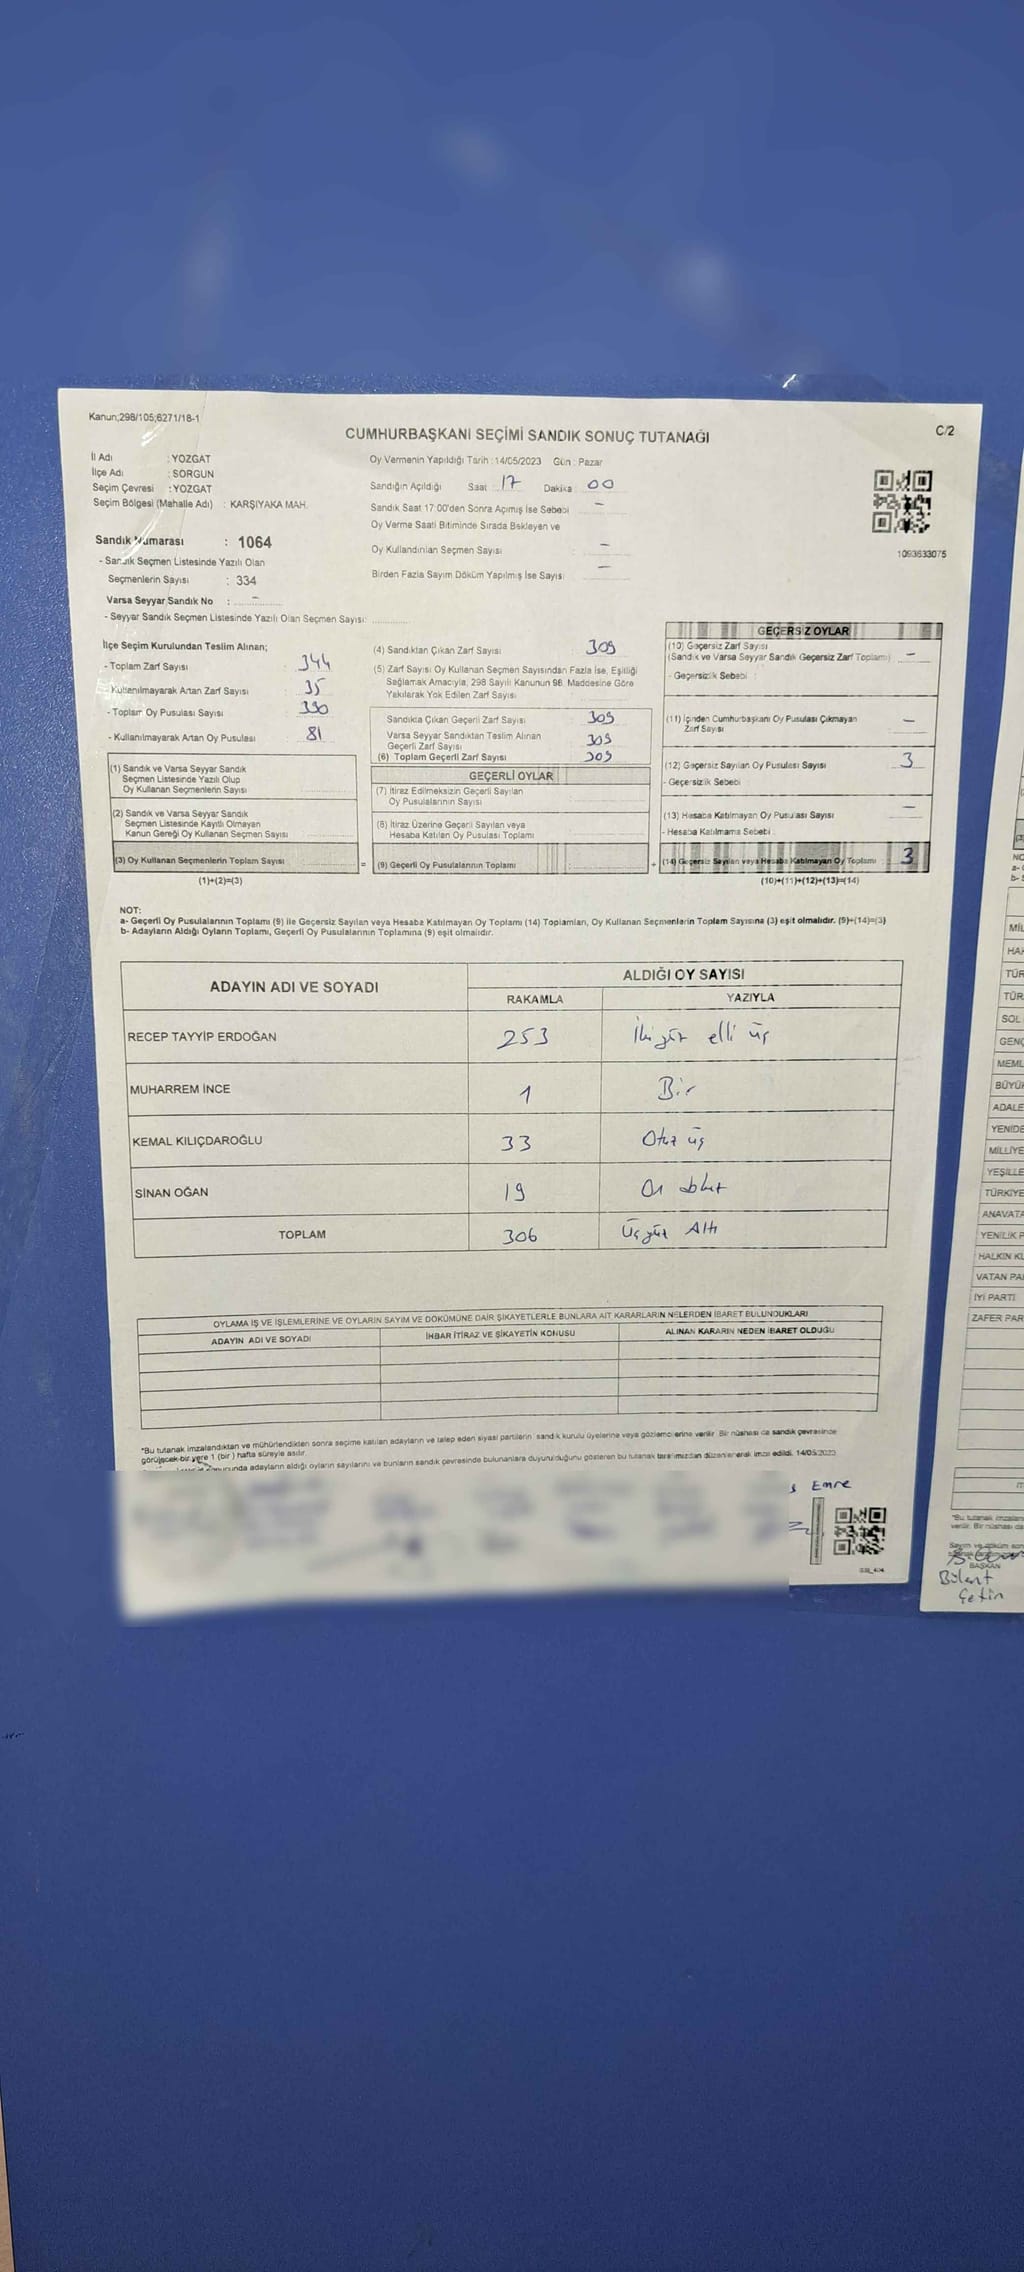 Kanun;298/105;6271/18-1
CUMHURBAŞKANI SEÇİMİ SANDIK SONUÇ TUTANAĞI
C/2
İl Adı : YOZGAT
İlçe Adı : SORGUN
Seçim Çevresi : YOZGAT
Seçim Bölgesi (Mahalle Adı) : KARŞIYAKA MAH.
Sandık Numarası : 1064
- Sandık Seçmen Listesinde Yazılı Olan
Seçmenlerin Sayısı : 334
Varsa Seyyar Sandık No : -
- Seyyar Sandık Seçmen Listesinde Yazılı Olan Seçmen Sayısı:
Oy Vermenin Yapıldığı Tarih : 14/05/2023 Gün : Pazar
Sandığın Açıldığı Saat : 17 Dakika : 00
Sandık Saat 17:00'den Sonra Açımış İse Sebebi -
Oy Verme Saati Bitiminde Sırada Bekleyen ve
Oy Kullandırılan Seçmen Sayısı : -
Birden Fazla Sayım Döküm Yapılmış İse Sayısı : -
1093633075
İlçe Seçim Kurulundan Teslim Alınan;
- Toplam Zarf Sayısı : 344
- Kullanılmayarak Artan Zarf Sayısı : 35
- Toplam Oy Pusulası Sayısı : 390
- Kullanılmayarak Artan Oy Pusulası : 81
(1) Sandık ve Varsa Seyyar Sandık
Seçmen Listesinde Yazılı Olup
Oy Kullanan Seçmenlerin Sayısı
(2) Sandık ve Varsa Seyyar Sandık
Seçmen Listesinde Kayıtlı Olmayan
Kanun Gereği Oy Kullanan Seçmen Sayısı
(3) Oy Kullanan Seçmenlerin Toplam Sayısı
(1)+(2)=(3)
(4) Sandıktan Çıkan Zarf Sayısı : 309
(5) Zarf Sayısı Oy Kullanan Seçmen Sayısından Fazla İse, Eşitliği
Sağlamak Amacıyla, 298 Sayılı Kanunun 98. Maddesine Göre
Yakılarak Yok Edilen Zarf Sayısı
Sandıkta Çıkan Geçerli Zarf Sayısı : 309
Varsa Seyyar Sandıktan Teslim Alınan
Geçerli Zarf Sayısı : 309
(6) Toplam Geçerli Zarf Sayısı : 309
GEÇERLİ OYLAR
(7) İtiraz Edilmeksizin Geçerli Sayılan
Oy Pusulalarının Sayısı
(8) İtiraz Üzerine Geçerli Sayılan veya
Hesaba Katılan Oy Pusulası Toplamı
= (9) Geçerli Oy Pusulalarının Toplamı +
GEÇERSİZ OYLAR
(10) Geçersiz Zarf Sayısı
(Sandık ve Varsa Seyyar Sandık Geçersiz Zarf Toplamı) -
- Geçersizlik Sebebi :
(11) İçinden Cumhurbaşkanı Oy Pusulası Çıkmayan
Zarf Sayısı -
(12) Geçersiz Sayılan Oy Pusulası Sayısı : 3
- Geçersizlik Sebebi
(13) Hesaba Katılmayan Oy Pusulası Sayısı -
- Hesaba Katılmama Sebebi
(14) Geçersiz Sayılan veya Hesaba Katılmayan Oy Toplamı : 3
(10)+(11)+(12)+(13)=(14)
NOT:
a- Geçerli Oy Pusulalarının Toplamı (9) ile Geçersiz Sayılan veya Hesaba Katılmayan Oy Toplamı (14) Toplamları, Oy Kullanan Seçmenlerin Toplam Sayısına (3) eşit olmalıdır. (9)+(14)=(3)
b- Adayların Aldığı Oyların Toplamı, Geçerli Oy Pusulalarının Toplamına (9) eşit olmalıdır.
ADAYIN ADI VE SOYADI
ALDIĞI OY SAYISI
RAKAMLA YAZIYLA
RECEP TAYYİP ERDOĞAN 253 İkiyüz elli üç
MUHARREM İNCE 1 Bir
KEMAL KILIÇDAROĞLU 33 Otuz üç
SİNAN OĞAN 19 On dokuz
TOPLAM 306 Üçyüz Altı
OYLAMA İŞ VE İŞLEMLERİNE VE OYLARIN SAYIM VE DÖKÜMÜNE DAİR ŞİKAYETLERLE BUNLARA AİT KARARLARIN NELERDEN İBARET BULUNDUKLARI
ADAYIN ADI VE SOYADI İHBAR İTİRAZ VE ŞİKAYETİN KONUSU ALINAN KARARIN NEDEN İBARET OLDUĞU
*Bu tutanak imzalandıktan ve mühürlendikten sonra seçime katılan adayların ve talep eden siyasi partilerin sandık kurulu üyelerine veya gözlemcilerine verilir. Bir nüshası da sandık çevresinde
görülecek bir yere 1 (bir) hafta süreyle asılır.
sonunda adayların aldığı oyların sayılarını ve bunların sandık çevresinde bulunanlara duyurulduğunu gösteren bu tutanak tarafımızdan düzenlenerek imza edildi. 14/05/2023
Emre
MİL
HAK
TÜR
TÜR
SOL
GENÇ
MEML
BÜYÜK
ADALE
YENİDE
MİLLİYE
YEŞİLLE
TÜRKİYE
ANAVATA
YENİLİK P
HALKIN KU
VATAN PA
İYİ PARTİ
ZAFER PAR
*Bu tutanak imzalan
verilir. Bir nüshası da
Sayım ve döküm son
BAŞKAN
Bülent
Çetin